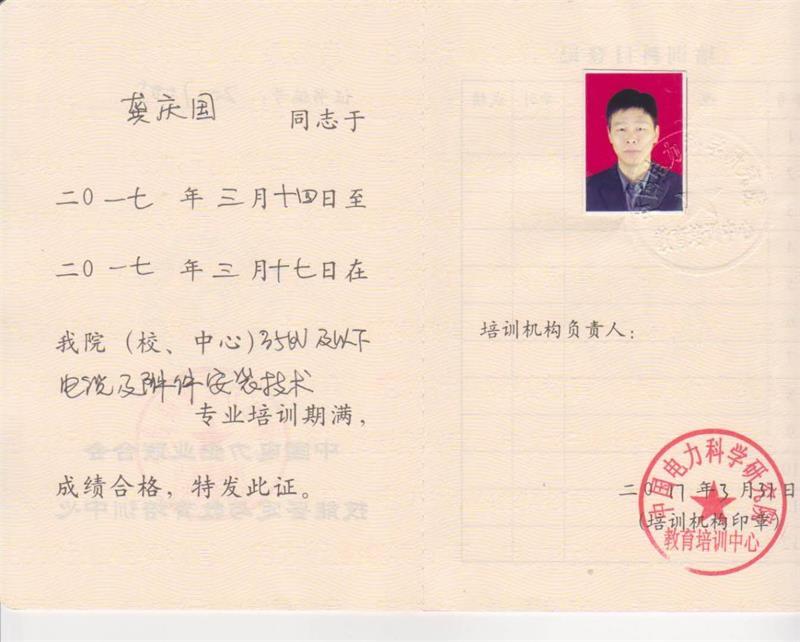 龚庆国 同志于
二〇一七 年 三月十四日至
二〇一七 年 三 月十七日在
我院（校、中心）35kV及以下
电缆及附件安装技术
专业培训期满，
成绩合格，特发此证。
培训机构负责人：
二〇17年3月31日
（培训机构印章）
中国电力科学研究院
教育培训中心